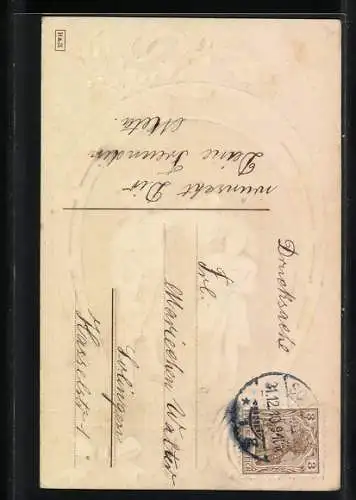 H&S
Drucksache
Frl.
Mariechen Walter
Solingen
Hasselstr.
wünscht Dir
Deine Freundin
Meta.
31.12.10
3
3